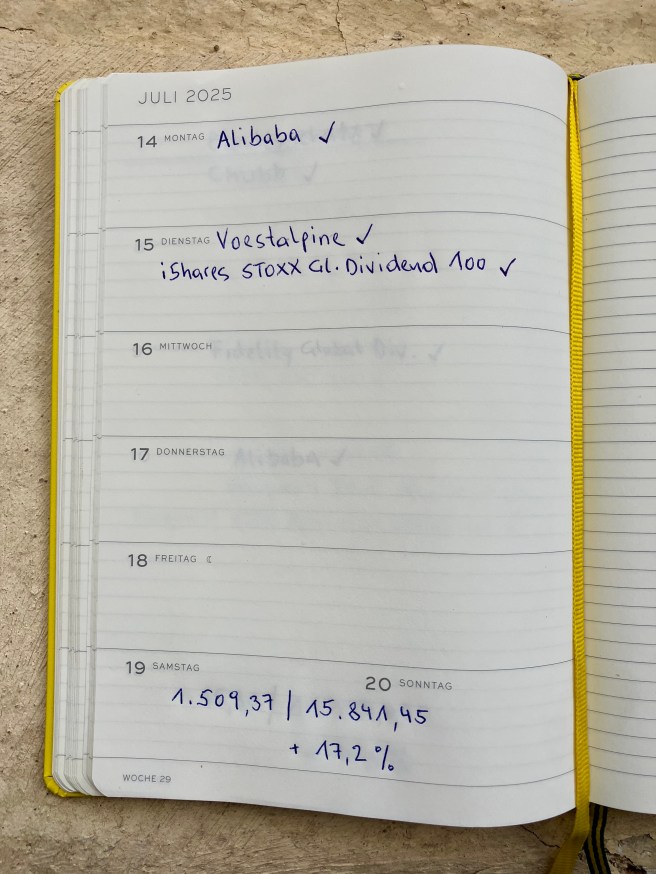 JULI 2025
14 MONTAG Alibaba ✓
15 DIENSTAG Voestalpine ✓
iShares STOXX Gl. Dividend 100 ✓
16 MITTWOCH
17 DONNERSTAG
18 FREITAG ☾
19 SAMSTAG
20 SONNTAG
1.509,37 | 15.841,45
+ 17,2 %
WOCHE 29